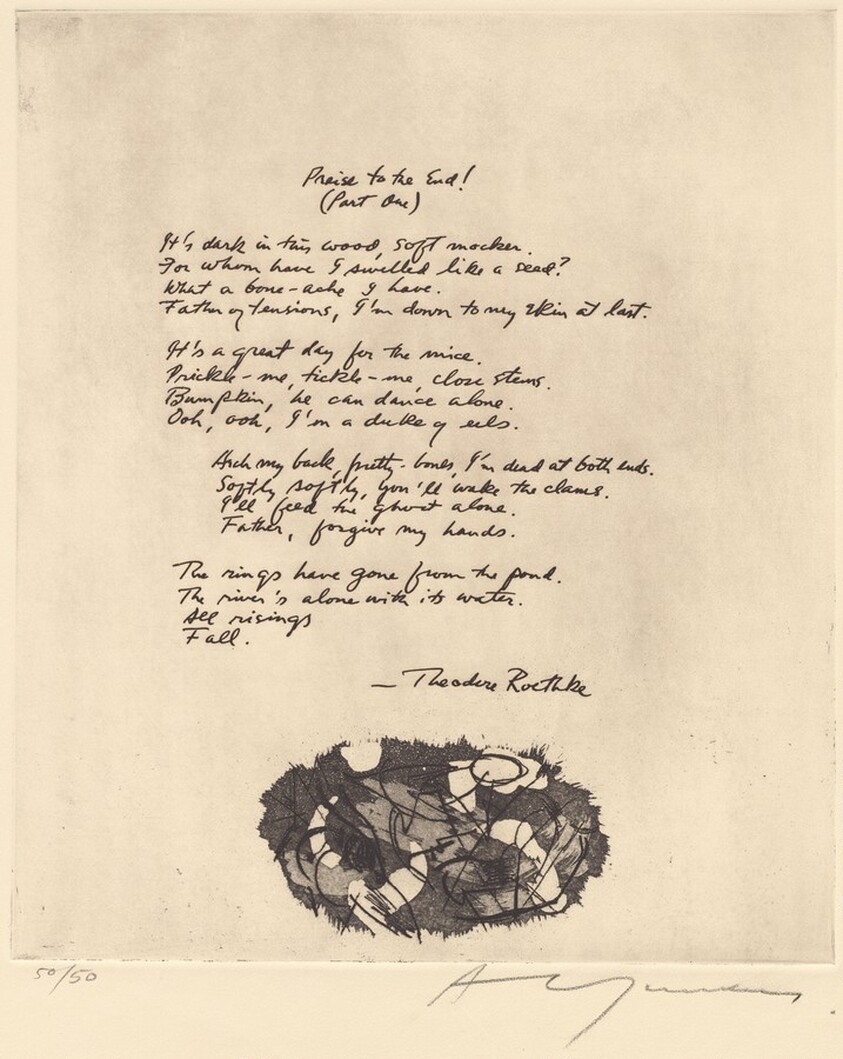 Praise to the End!
(Part One)
It's dark in this wood, soft mocker.
For whom have I swelled like a seed?
What a bone-ache I have.
Father of tensions, I'm down to my skin at last.
It's a great day for the mice.
Prickle-me, tickle-me, close stems.
Bumpkin, he can dance alone.
Ooh, ooh, I'm a duke of eels.
Arch my back, pretty-bones, I'm dead at both ends.
Softly softly, you'll wake the clams.
I'll feed the ghost alone.
Father, forgive my hands.
The rings have gone from the pond.
The river's alone with its water.
All risings
Fall.
— Theodore Roethke
50/50